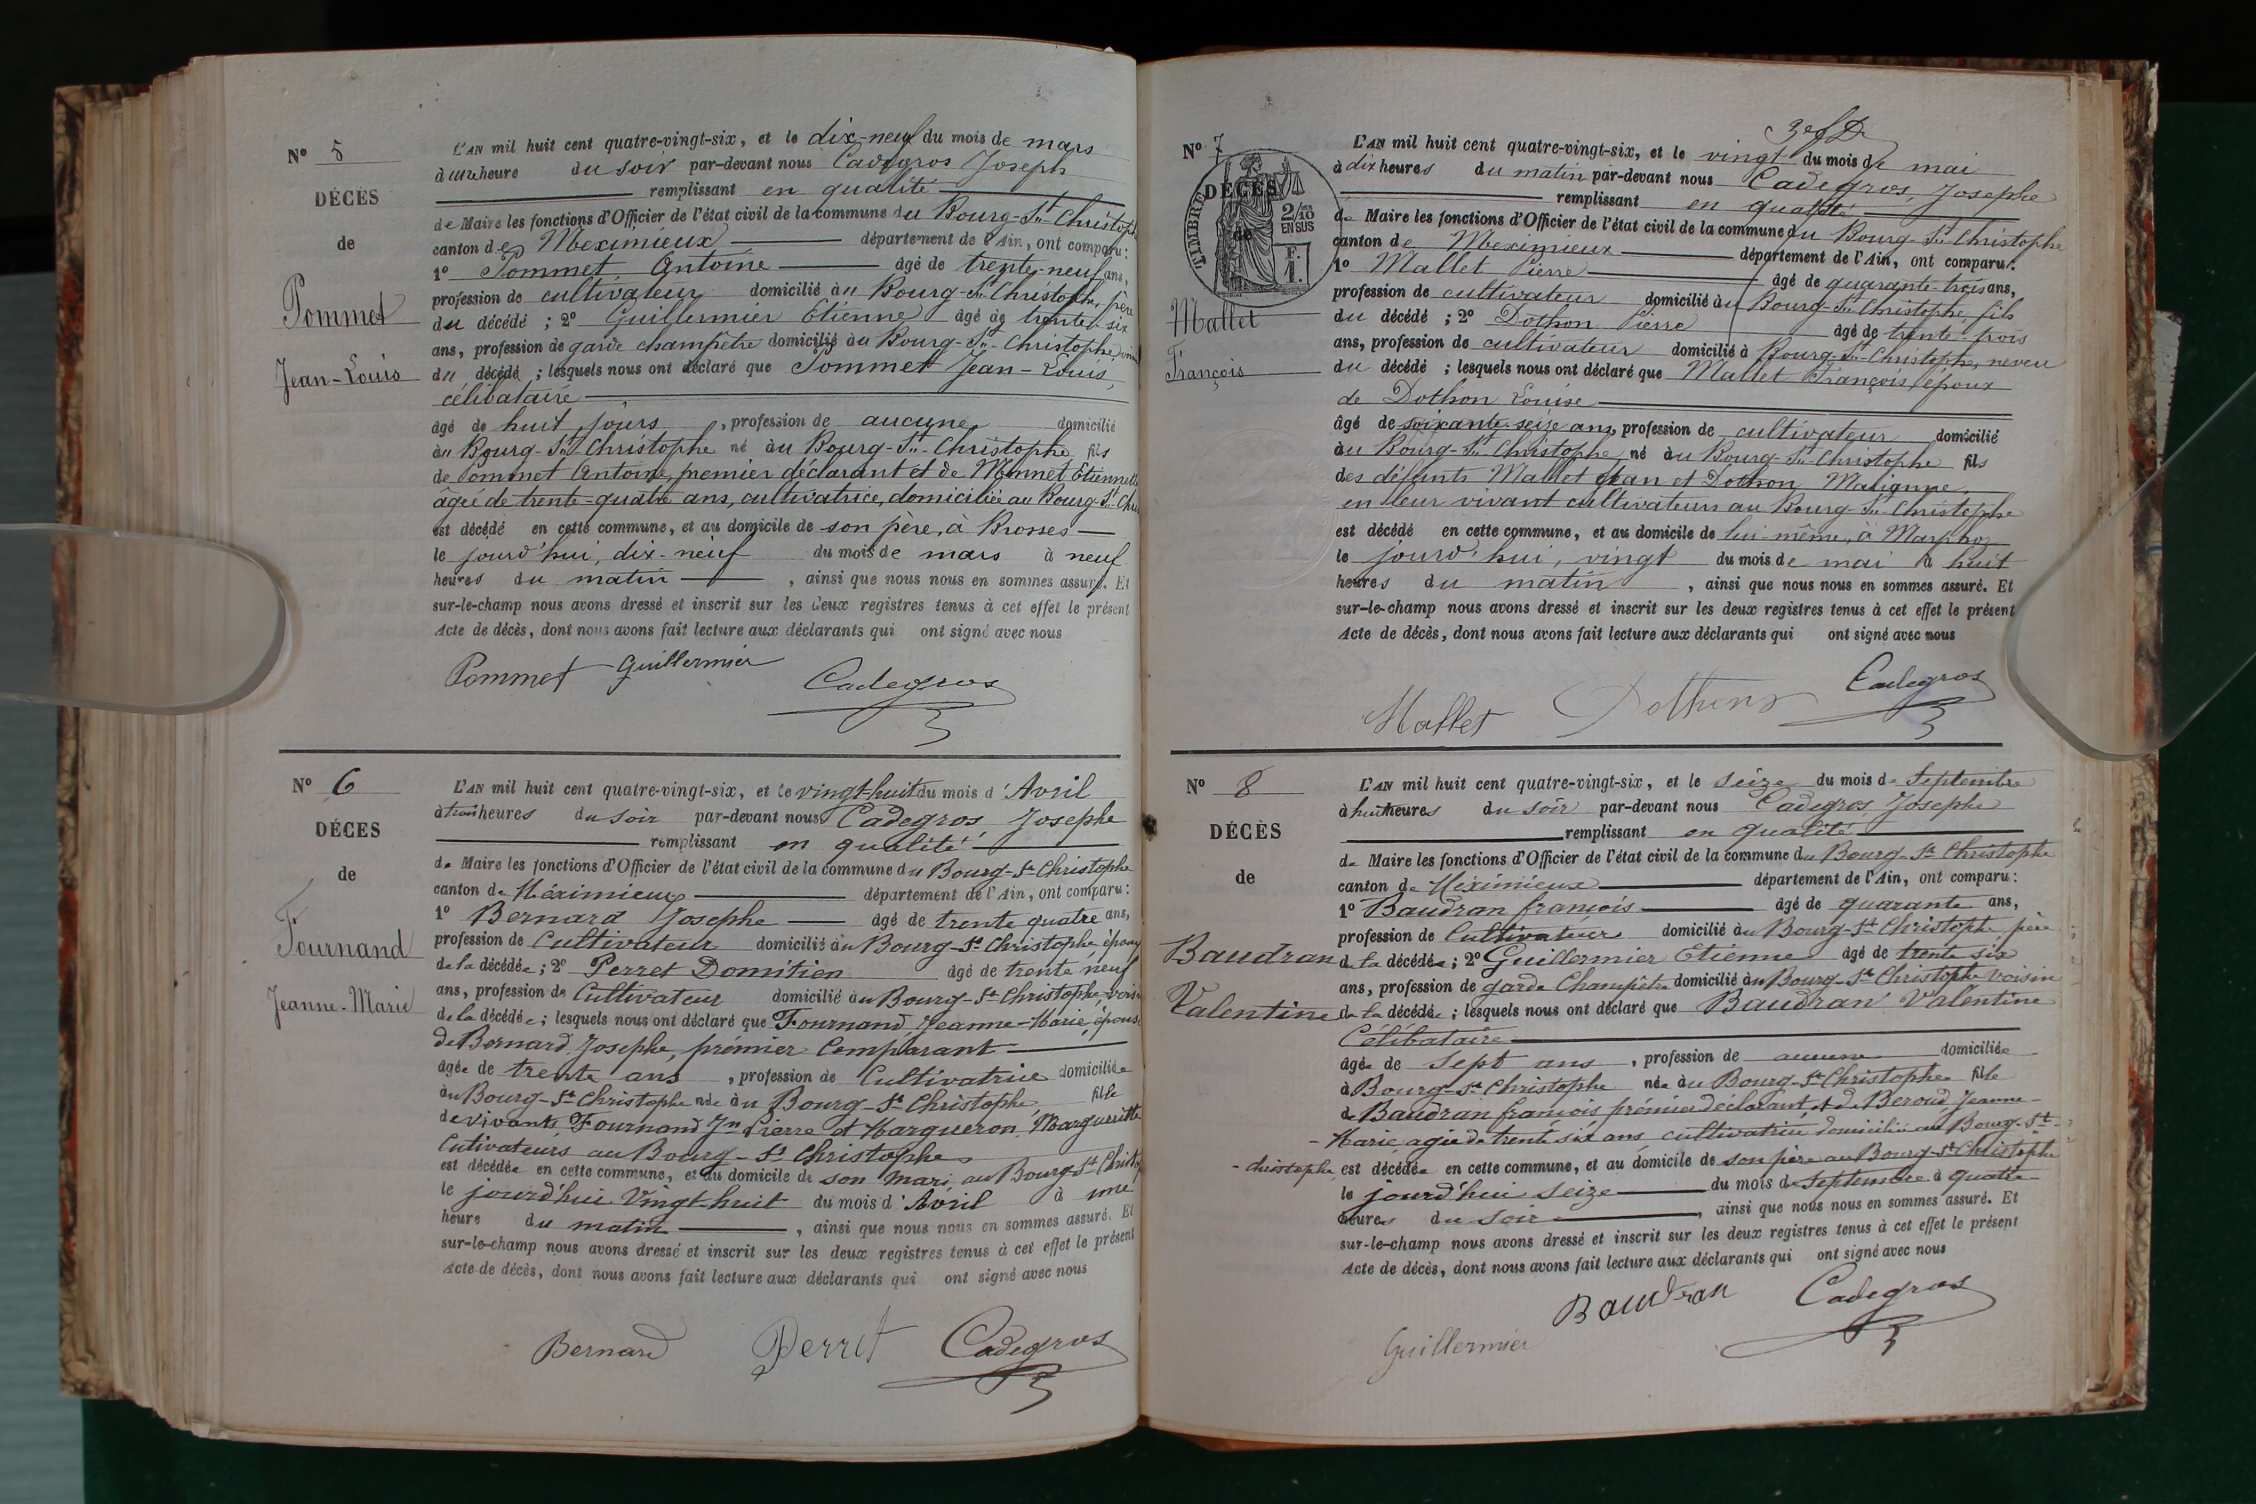 N° 5
DÉCÈS
de
Pommet
Jean-Louis
L'AN mil huit cent quatre-vingt-six, et le dix-neuf du mois de mars
à une heure du soir par-devant nous Cadegros Joseph
remplissant en qualité
de Maire les fonctions d'Officier de l'état civil de la commune du Bourg-St-Christophe
canton de Meximieux département de l'Ain, ont comparu:
1° Pommet Antoine âgé de trente-neuf ans,
profession de cultivateur domicilié au Bourg-St-Christophe, père
du décédé ; 2° Guillermier Etienne âgé de trente-six
ans, profession de garde champêtre domicilié au Bourg-St-Christophe,
du décédé ; lesquels nous ont déclaré que Pommet Jean-Louis,
célibataire
âgé de huit jours, profession de aucune domicilié
au Bourg-St-Christophe né au Bourg-St-Christophe fils
de Pommet Antoine, premier déclarant et de Monnet Etiennette
âgée de trente-quatre ans, cultivatrice, domiciliée au Bourg-St-Chr
est décédé en cette commune, et au domicile de son père, à Brosses
le jourd'hui, dix-neuf du mois de mars à neuf
heures du matin, ainsi que nous nous en sommes assuré. Et
sur-le-champ nous avons dressé et inscrit sur les deux registres tenus à cet effet le présent
Acte de décès, dont nous avons fait lecture aux déclarants qui ont signé avec nous
Pommet Guillermier Cadegros
N° 6
DÉCES
de
Fournand
Jeanne-Marie
L'AN mil huit cent quatre-vingt-six, et le vingt-huit du mois d'Avril
à trois heures du soir par-devant nous Cadegros Josephe
remplissant en qualité
de Maire les fonctions d'Officier de l'état civil de la commune du Bourg-St-Christophe
canton de Méximieux département de l'Ain, ont comparu:
1° Bernard Josephe âgé de trente quatre ans,
profession de Cultivateur domicilié au Bourg-St-Christophe, époux
de la décédée ; 2° Perret Domitien âgé de trente neuf
ans, profession de Cultivateur domicilié au Bourg-St-Christophe, voisin
de la décédée ; lesquels nous ont déclaré que Fournand Jeanne-Marie, épouse
de Bernard Josephe, prémier Comparant
âgée de trente ans, profession de Cultivatrice domiciliée
au Bourg-St-Christophe née au Bourg-St-Christophe fille
de vivants Fournand Jn Pierre et Margueron Margueritte
Cutivateurs au Bourg-St Christophe
est décédée en cette commune, et au domicile de son mari au Bourg-St Christop
le jourd'hui Vingt-huit du mois d'Avril à une
heure du matin, ainsi que nous nous en sommes assuré. Et
sur-le-champ nous avons dressé et inscrit sur les deux registres tenus à cet effet le présent
Acte de décès, dont nous avons fait lecture aux déclarants qui ont signé avec nous
Bernard Perret Cadegros
N° 7
DÉCÈS
de
TIMBRE
2/10 EN SUS
F. 1.
Mallet
François
L'AN mil huit cent quatre-vingt-six, et le vingt du mois de mai
à dix heures du matin par-devant nous Cadegros, Josephe
remplissant en qualité
de Maire les fonctions d'Officier de l'état civil de la commune du Bourg-St-Christophe
canton de Meximieux département de l'Ain, ont comparu:
1° Mallet Pierre âgé de quarante-trois ans,
profession de cultivateur domicilié au Bourg-St-Christophe, fils
du décédé ; 2° Dothon Pierre âgé de trente-trois
ans, profession de cultivateur domicilié à Bourg-St-Christophe, neveu
du décédé ; lesquels nous ont déclaré que Mallet François époux
de Dothon Louise
âgé de soixante-seize ans, profession de cultivateur domicilié
au Bourg-St-Christophe né au Bourg-St-Christophe fils
des défunts Mallet Jean et Dothon Marianne
en leur vivant cultivateurs au Bourg-St-Christophe
est décédé en cette commune, et au domicile de lui-même, à Marphoz
le jourd'hui, vingt du mois de mai à huit
heures du matin, ainsi que nous nous en sommes assuré. Et
sur-le-champ nous avons dressé et inscrit sur les deux registres tenus à cet effet le présent
Acte de décès, dont nous avons fait lecture aux déclarants qui ont signé avec nous
Mallet Dothon Cadegros
N° 8
DÉCÈS
de
Baudran
Valentine
L'AN mil huit cent quatre-vingt-six, et le seize du mois de Septembre
à huit heures du soir par-devant nous Cadegros Josephe
remplissant en qualité
de Maire les fonctions d'Officier de l'état civil de la commune du Bourg-St-Christophe
canton de Méximieux département de l'Ain, ont comparu:
1° Baudran françois âgé de quarante ans,
profession de Cultivateur domicilié au Bourg-St-Christophe père
de la décédée ; 2° Guillermier Etienne âgé de trente six
ans, profession de garde Champêtre domicilié au Bourg-St-Christophe voisin
de la décédée ; lesquels nous ont déclaré que Baudran Valentine
Célibataire
âgée de sept ans, profession de aucune domiciliée
à Bourg-St-Christophe née au Bourg-St-Christophe fille
de Baudran françois prémier déclarant, et de Beroud Jeanne-
-Marie agée de trente six ans cultivatrice domiciliée au Bourg-St-
-christophe, est décédée en cette commune, et au domicile de son père au Bourg-St-Christophe
le jourd'hui seize du mois de septembre à quatre
heures du soir, ainsi que nous nous en sommes assuré. Et
sur-le-champ nous avons dressé et inscrit sur les deux registres tenus à cet effet le présent
Acte de décès, dont nous avons fait lecture aux déclarants qui ont signé avec nous
Baudran Cadegros
Guillermier